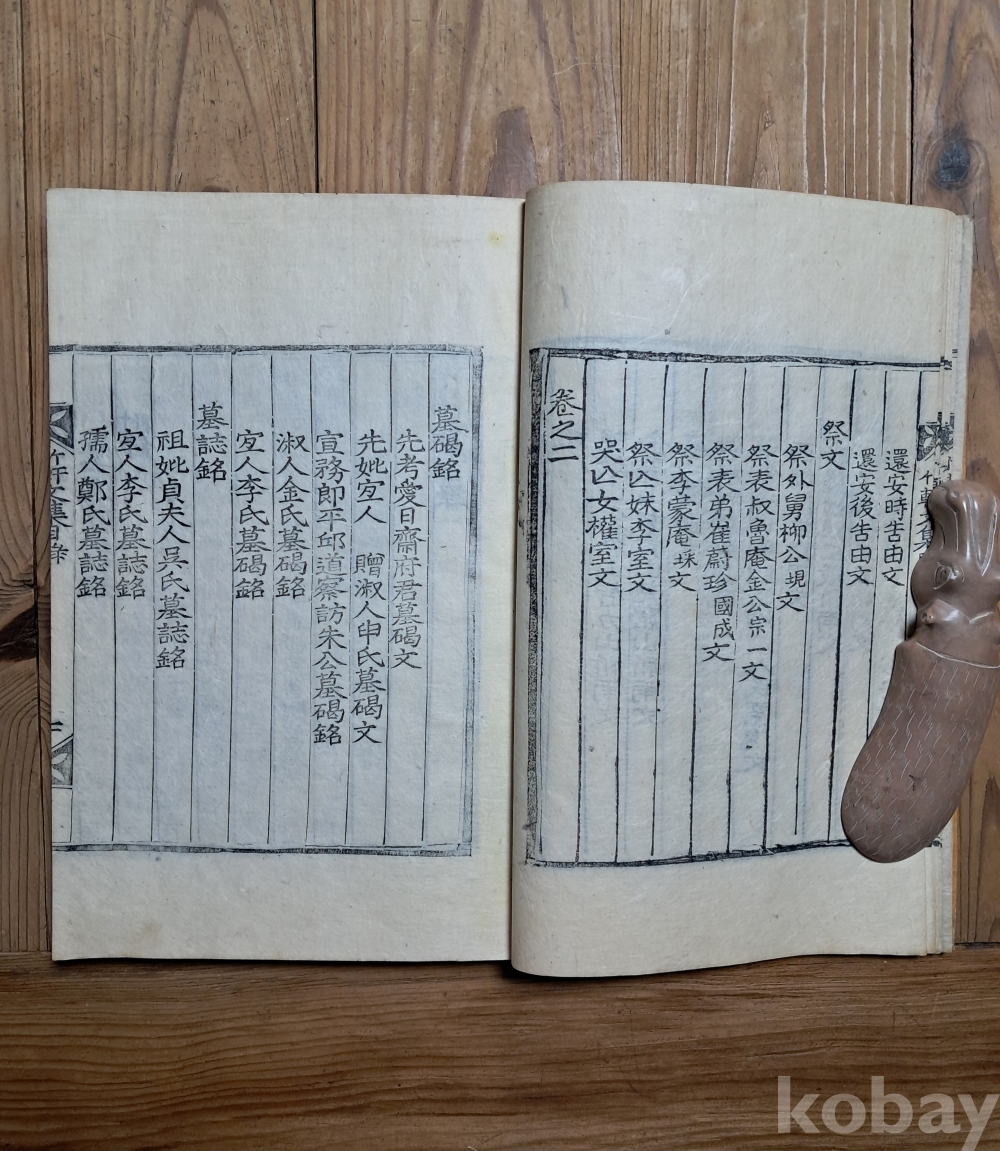 還安時告由文
還安後告由文
祭文
祭外舅柳公堄文
祭表叔魯庵金公宗一文
祭表弟崔蔚珍國成文
祭李蒙庵埰文
祭亡妹李室文
哭亡女權室文
卷之二
墓碣銘
先考愛日齋府君墓碣文
先妣宜人贈淑人申氏墓碣文
宣務郞平邱道察訪朱公墓碣銘
淑人金氏墓碣銘
宜人李氏墓碣銘
墓誌銘
祖妣貞夫人吳氏墓誌銘
宜人李氏墓誌銘
孺人鄭氏墓誌銘
文集目錄
二
kobay